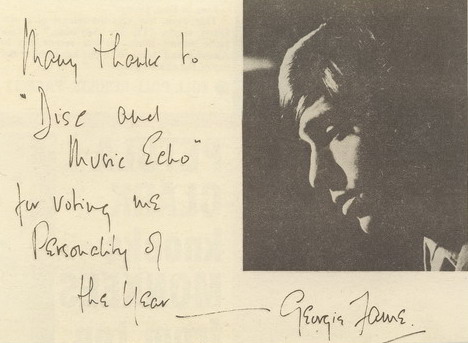 Many thanks to
"Disc and
Music Echo"
for voting me
Personality of
the Year
Georgie Fame.